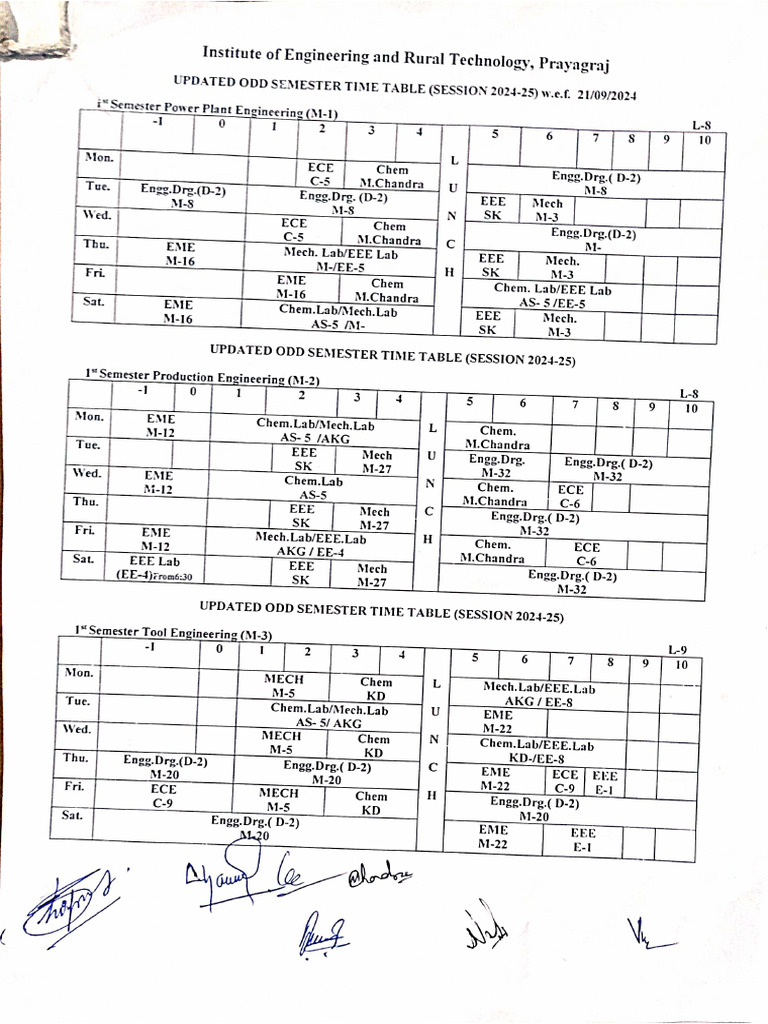 Institute of Engineering and Rural Technology, Prayagraj
UPDATED ODD SEMESTER TIME TABLE (SESSION 2024-25) w.e.f. 21/09/2024
1st Semester Power Plant Engineering (M-1) L-8
-1 0 1 2 3 4 LUNCH 5 6 7 8 9 10
Mon. ECE Chem Engg.Drg.( D-2)
C-5 M.Chandra M-8
Tue. Engg.Drg.(D-2) Engg.Drg. (D-2) EEE Mech
M-8 M-8 SK M-3
Wed. ECE Chem Engg.Drg.(D-2)
C-5 M.Chandra M-
Thu. EME Mech. Lab/EEE Lab EEE Mech.
M-16 M-/EE-5 SK M-3
Fri. EME Chem Chem. Lab/EEE Lab
M-16 M.Chandra AS- 5 /EE-5
Sat. EME Chem.Lab/Mech.Lab EEE Mech.
M-16 AS-5 /M- SK M-3
UPDATED ODD SEMESTER TIME TABLE (SESSION 2024-25)
1st Semester Production Engineering (M-2) L-8
-1 0 1 2 3 4 LUNCH 5 6 7 8 9 10
Mon. EME Chem.Lab/Mech.Lab Chem.
M-12 AS- 5 /AKG M.Chandra
Tue. EEE Mech Engg.Drg. Engg.Drg.( D-2)
SK M-27 M-32 M-32
Wed. EME Chem.Lab Chem. ECE
M-12 AS-5 M.Chandra C-6
Thu. EEE Mech Engg.Drg.( D-2)
SK M-27 M-32
Fri. EME Mech.Lab/EEE.Lab Chem. ECE
M-12 AKG / EE-4 M.Chandra C-6
Sat. EEE Lab EEE Mech Engg.Drg.( D-2)
(EE-4)From6:30 SK M-27 M-32
UPDATED ODD SEMESTER TIME TABLE (SESSION 2024-25)
1st Semester Tool Engineering (M-3) L-9
-1 0 1 2 3 4 LUNCH 5 6 7 8 9 10
Mon. MECH Chem Mech.Lab/EEE.Lab
M-5 KD AKG / EE-8
Tue. Chem.Lab/Mech.Lab EME
AS- 5/ AKG M-22
Wed. MECH Chem Chem.Lab/EEE.Lab
M-5 KD KD-/EE-8
Thu. Engg.Drg.(D-2) Engg.Drg.(D-2) EME ECE EEE
M-20 M-20 M-22 C-9 E-1
Fri. ECE MECH Chem Engg.Drg.( D-2)
C-9 M-5 KD M-20
Sat. Engg.Drg.( D-2) EME EEE
M-20 M-22 E-1